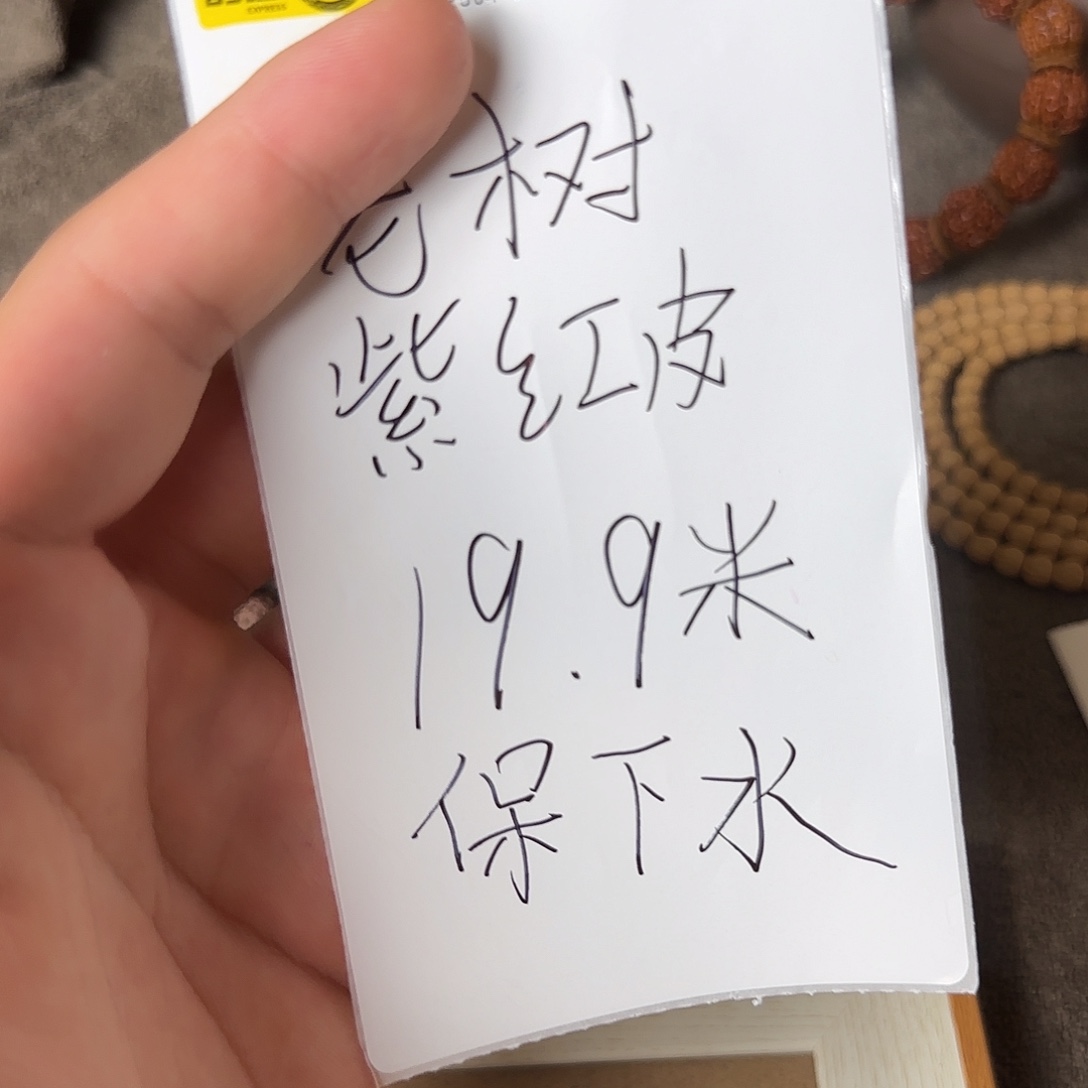 EXPRESS
老树
紫红皮
19.9米
保下水